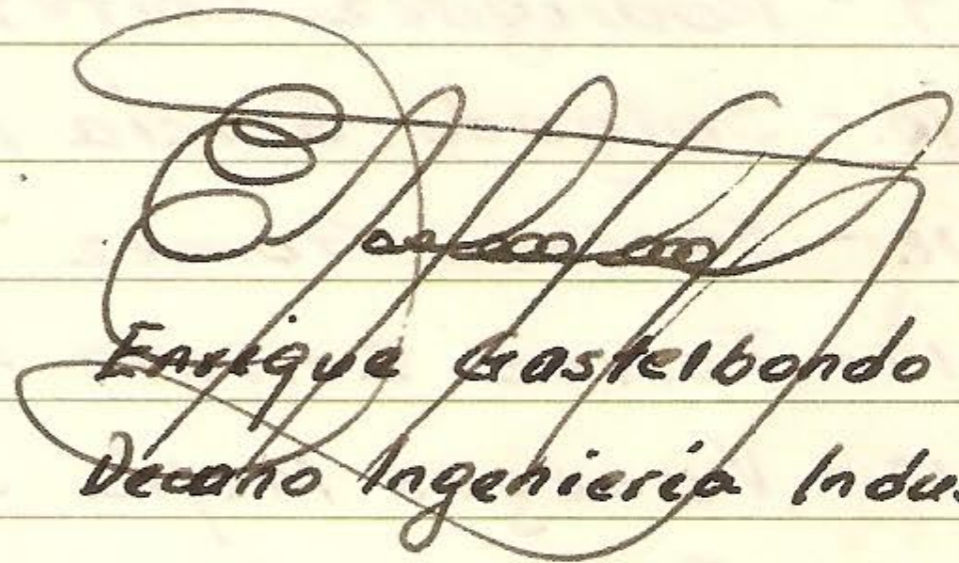 Enrique Gastelbondo
Decano Ingeniería Indus